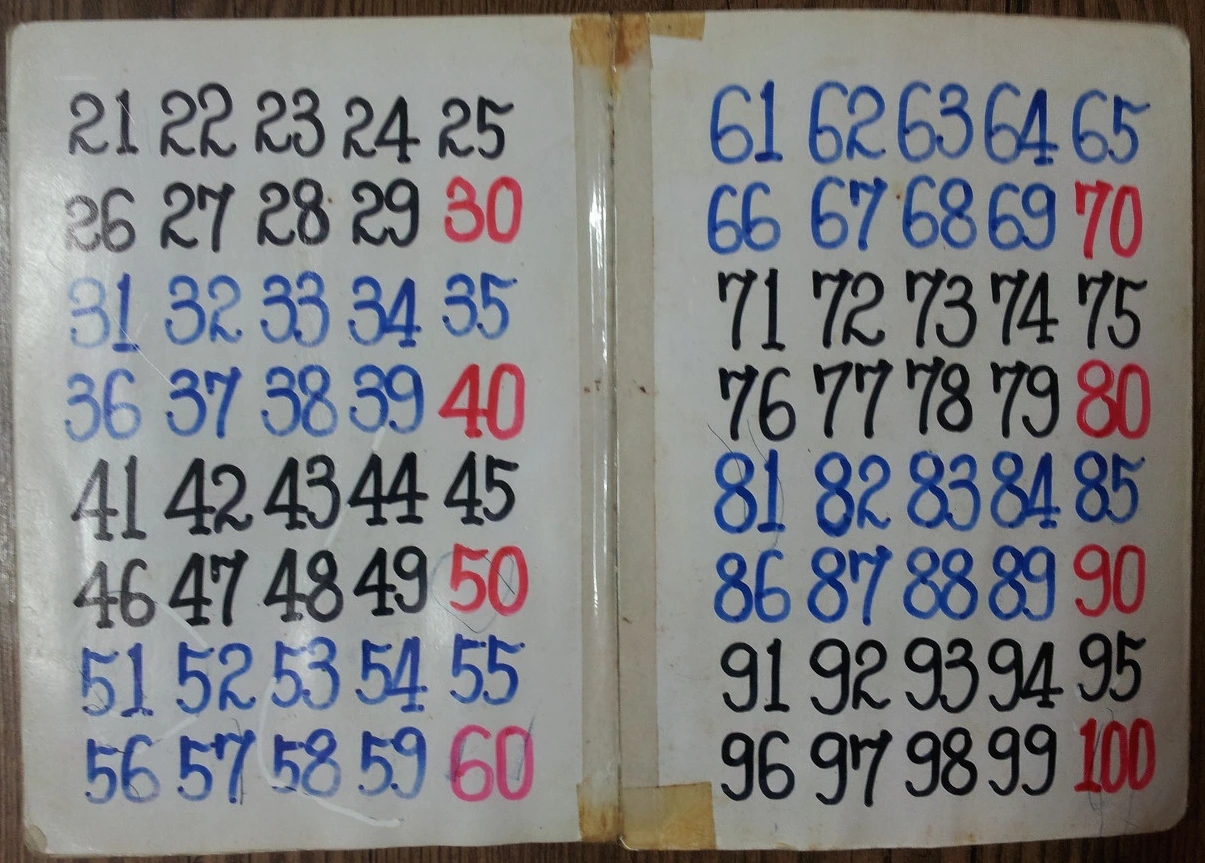 21 22 23 24 25
26 27 28 29 30
31 32 33 34 35
36 37 38 39 40
41 42 43 44 45
46 47 48 49 50
51 52 53 54 55
56 57 58 59 60
61 62 63 64 65
66 67 68 69 70
71 72 73 74 75
76 77 78 79 80
81 82 83 84 85
86 87 88 89 90
91 92 93 94 95
96 97 98 99 100